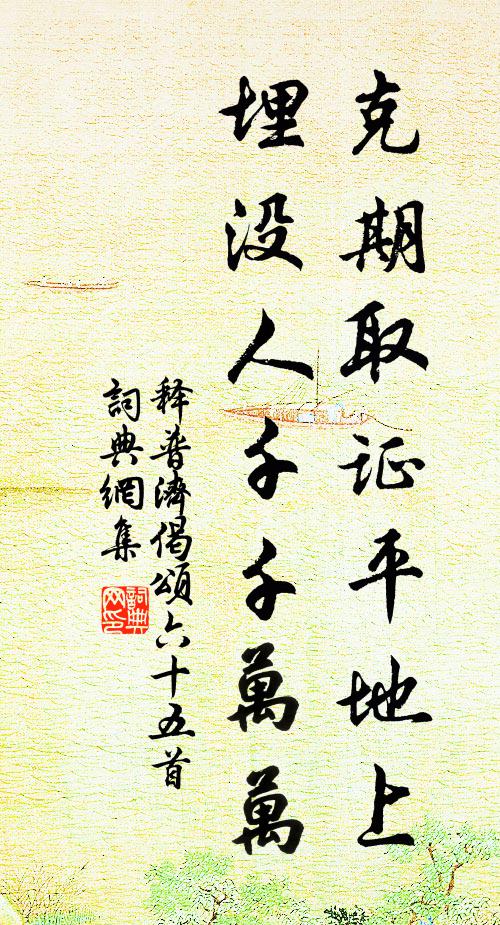 克期取证平地上
埋没人千千萬萬
释普濟偈頌六十五首
詞典網集
詞典网印